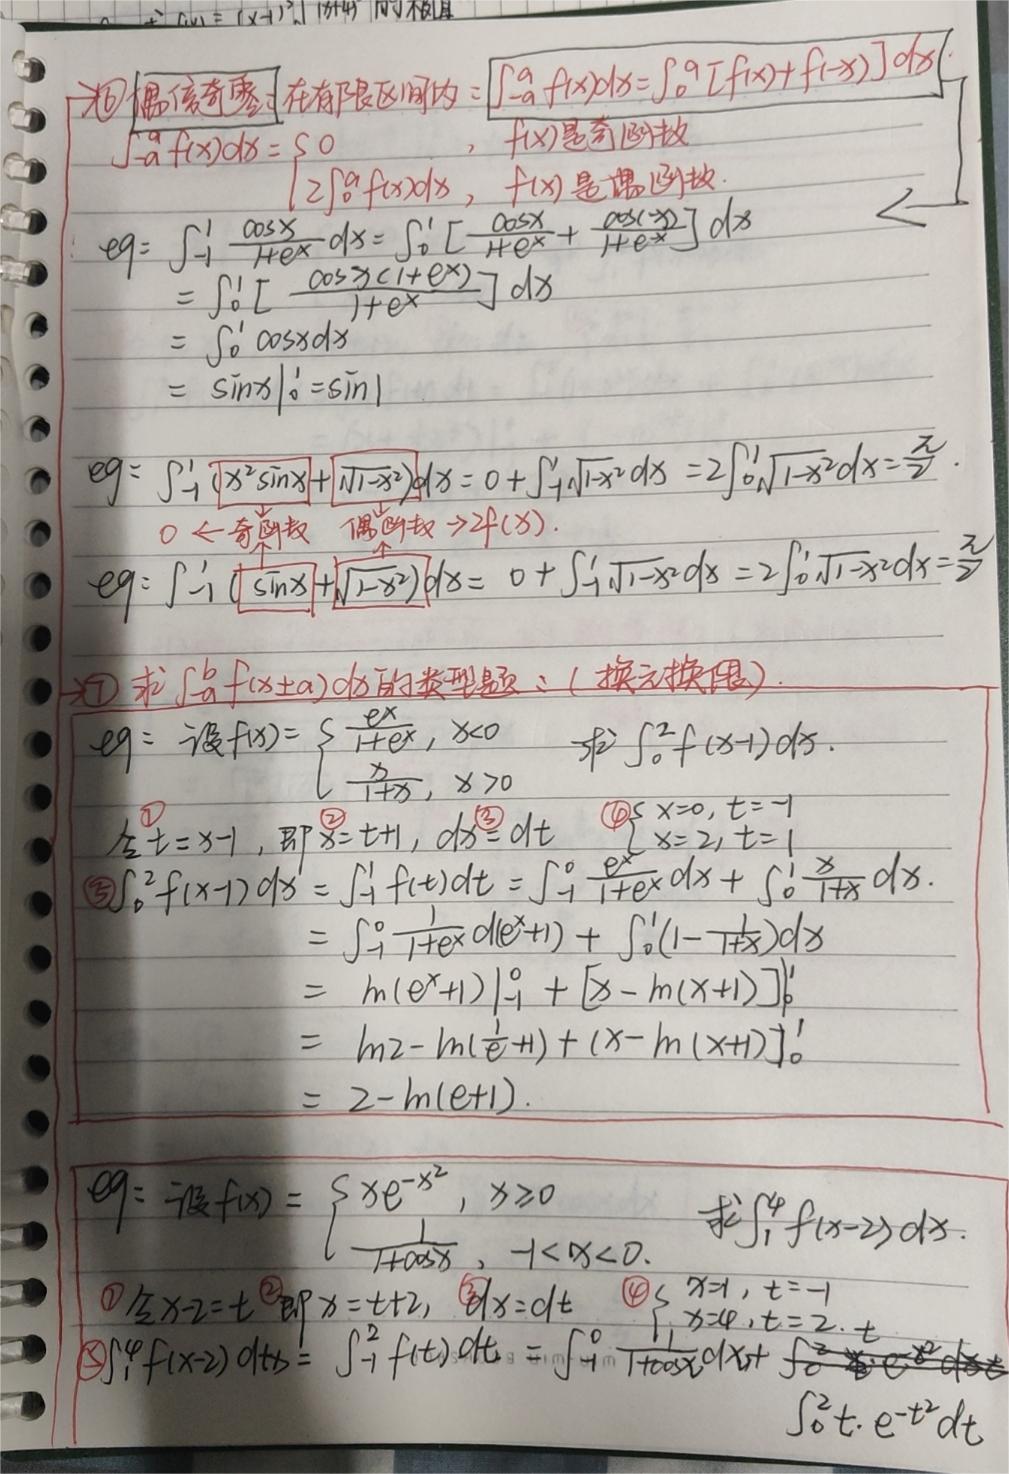 ⑥ 偶倍奇零: 在有限区间内: ∫_{-a}^{a} f(x)dx = ∫_0^a [f(x)+f(-x)]dx.
∫_{-a}^{a} f(x)dx = { 0 , f(x)是奇函数
2∫_0^a f(x)dx, f(x)是偶函数.
eg: ∫_{-1}^{1} cosx/(1+e^x) dx = ∫_0^1 [cosx/(1+e^x) + cos(-x)/(1+e^x)] dx
= ∫_0^1 [cosx(1+e^x)/(1+e^x)] dx
= ∫_0^1 cosxdx
= sinx|_0^1 = sin1
eg: ∫_{-1}^{1} (x²sinx + √(1-x²))dx = 0 + ∫_{-1}^{1} √(1-x²) dx = 2∫_0^1 √(1-x²) dx = π/2.
0 ← 奇函数 偶函数 → 2f(x).
eg: ∫_{-1}^{1} (sinx + √(1-x²))dx = 0 + ∫_{-1}^{1} √(1-x²) dx = 2∫_0^1 √(1-x²) dx = π/2
⑦ 求 ∫_a^b f(x±a)dx 的类型题: (换元换限).
eg: 设f(x) = { e^x/(1+e^x), x<0 求 ∫_0^2 f(x-1)dx.
x/(1+x), x>0
① 令t=x-1, 即 ② x=t+1, ③ dx=dt ④ { x=0, t=-1
x=2, t=1
⑤ ∫_0^2 f(x-1)dx = ∫_{-1}^{1} f(t)dt = ∫_{-1}^{0} e^x/(1+e^x) dx + ∫_0^1 x/(1+x) dx.
= ∫_{-1}^{0} 1/(1+e^x) d(e^x+1) + ∫_0^1 (1 - 1/(1+x))dx
= ln(e^x+1)|_{-1}^{0} + [x-ln(x+1)]|_0^1
= ln2 - ln(1/e+1) + (x-ln(x+1)]_0^1
= 2-ln(e+1).
eg: 设f(x) = { xe^{-x²}, x≥0 求∫_1^4 f(x-2)dx.
1/(1+cosx), -1<x<0.
① 令x-2=t ② 即x=t+2, ③ dx=dt ④ { x=1, t=-1
x=4, t=2.
⑤ ∫_1^4 f(x-2)dx = ∫_{-1}^{2} f(t)dt = ∫_{-1}^{0} 1/(1+cost) dt +
∫_0^2 t·e^{-t²}dt